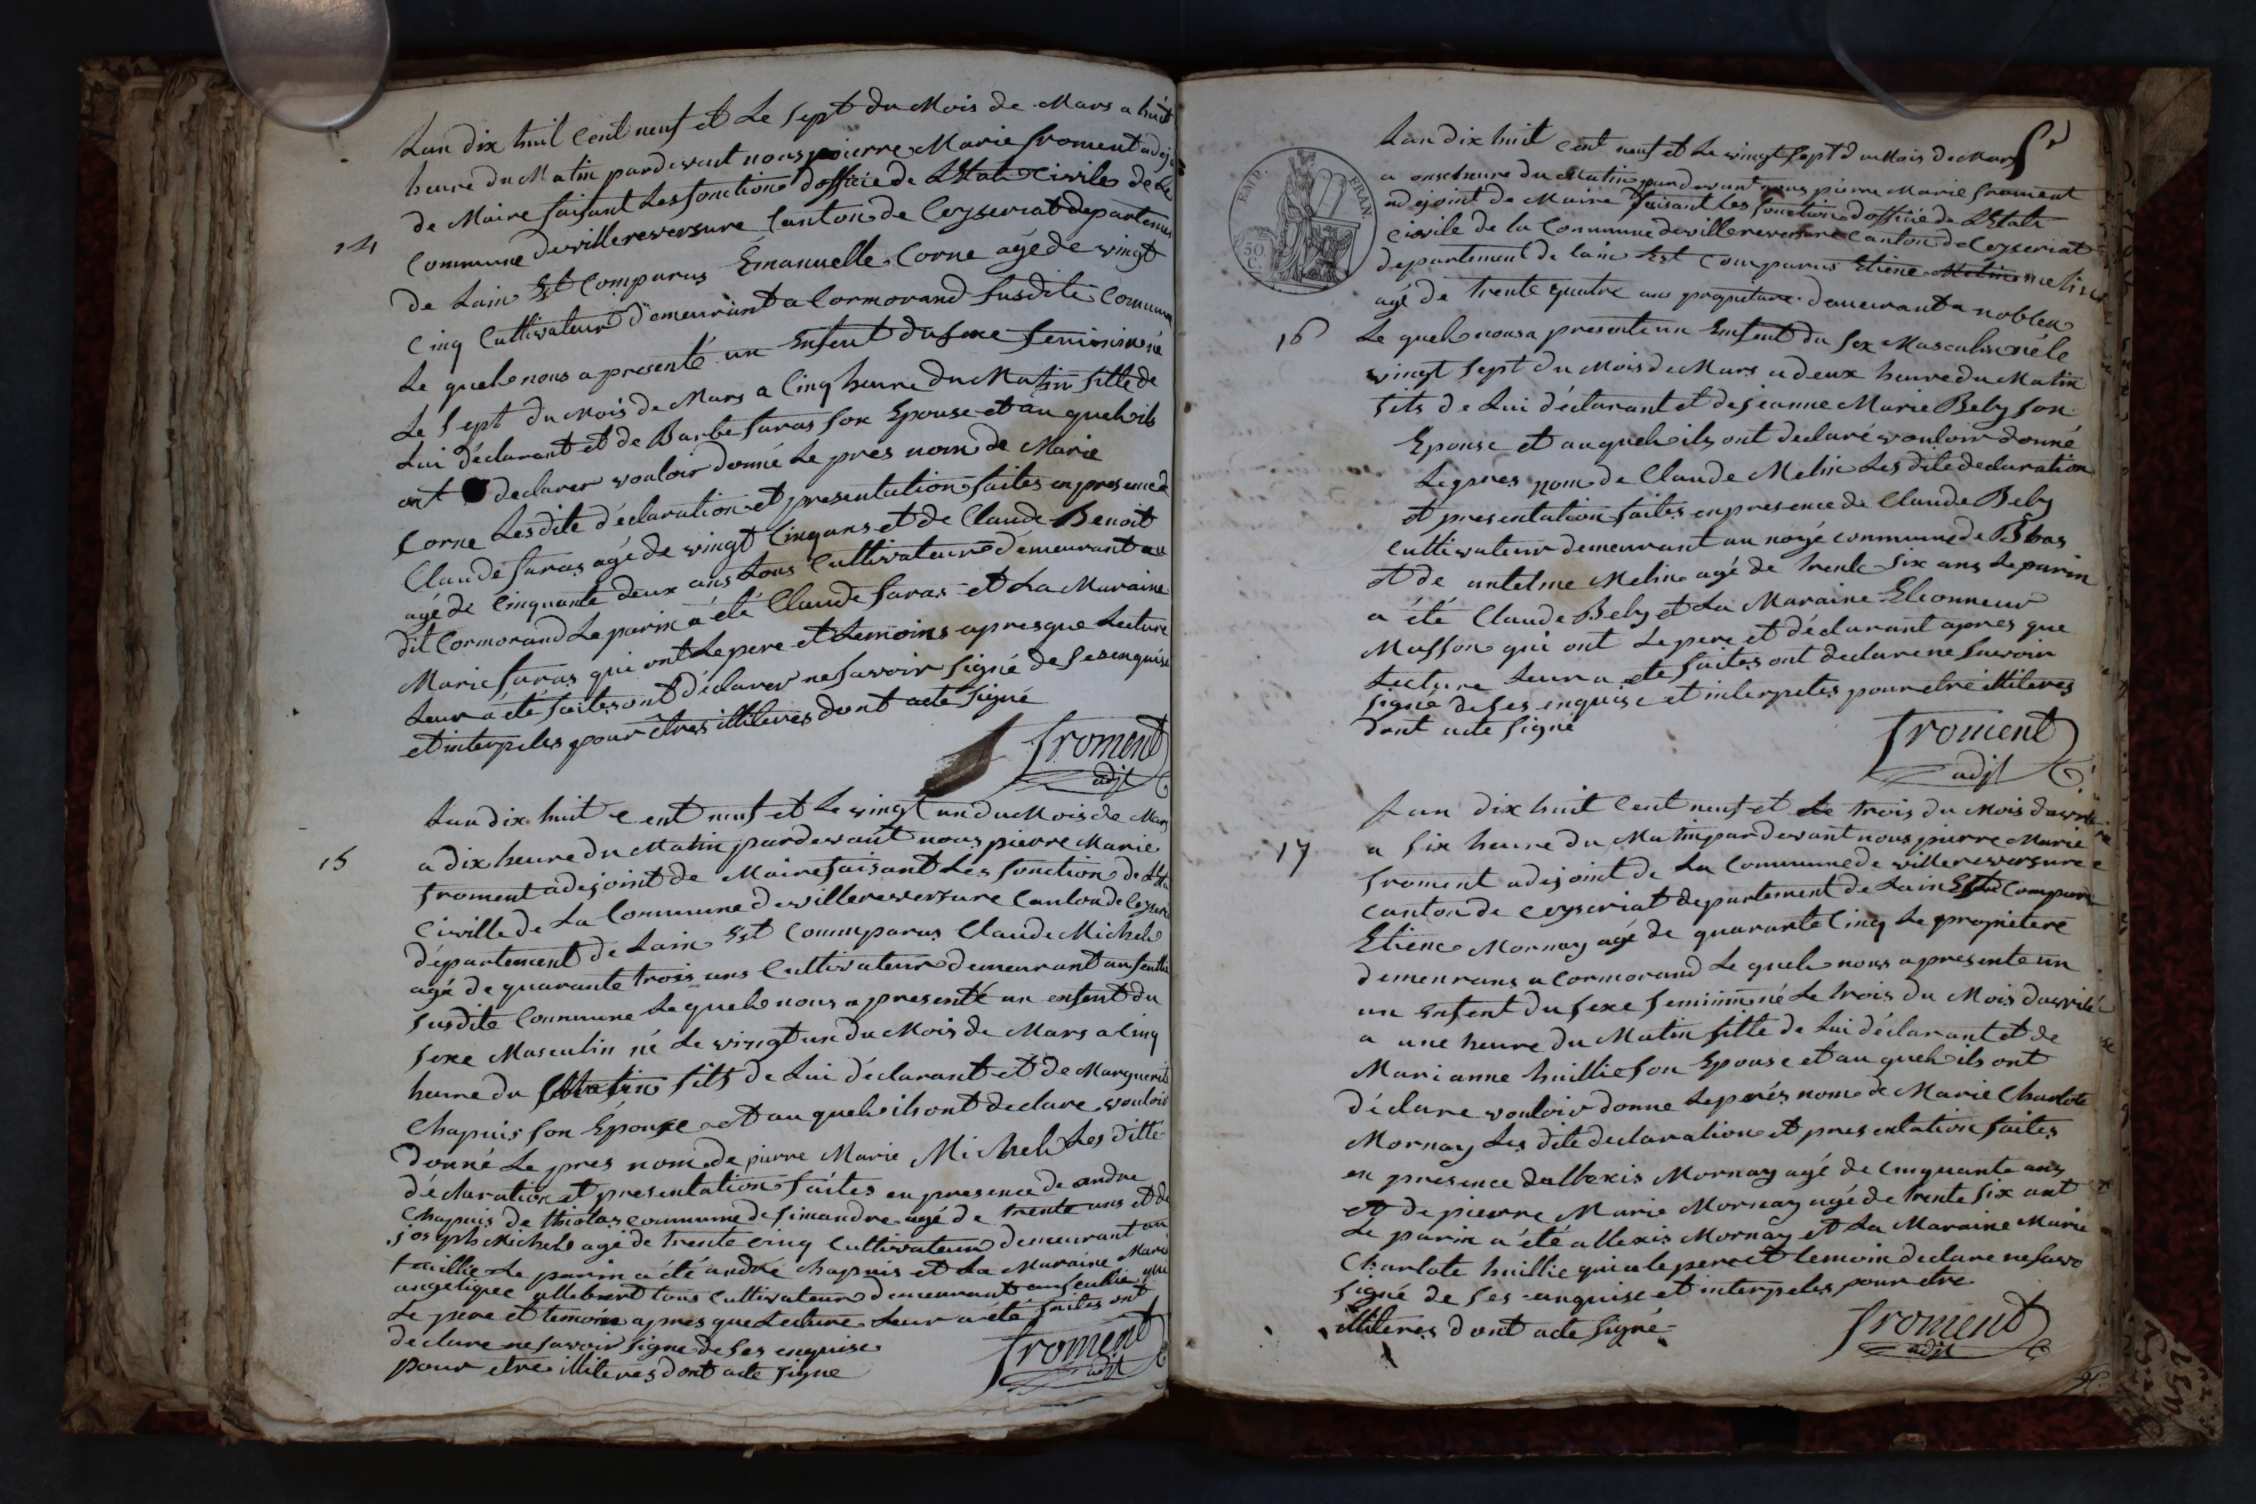 Lan dix huit Cent neuf et Le sept du Mois de Mars a huit
heure du Matin pardevant nous pierre Marie froment adej
de Maire faisant Les fonction dofficie de LEtat Civile de La
14
Commune devillereversure Canton de Ceyseriat departemen
de Lain Est Comparus Emanuelle Corne agé de vingt
Cinq Cultivateur demeurant a Cormorand Susdite Commune
Le quel nous a presenté un Enfent du sexe feminin né
Le Sept du Mois de Mars a Cinq heure du Matin fille de
Lui déclarant et de Barbe faras son Epouse et au quel ils
ont declarer vouloir donné Le pres nom de Marie
Corne Lesdite déclaration et presentation faites en presence de
Claude faras agé de vingt Cinq ans et de Claude Benoit
agé de Cinquante deux ans tous Cultivateur demeurant au
dit Cormorand Le parin a été Claude faras et La Maraine
Marie faras qui ont Le pere et temoins apres que Lecture
Leur a été faites ont déclarer ne savoir signé de Ses enquise
et interpeles pour êtres illiteres dont acte signé
froment
adjt
Lan dix huit Cent neuf et Le vingt un du Mois de Mars
15
a dix heure du Matin pardevant nous pierre Marie
froment adejoint de Maire faisant Les fonction de
Civille de La Commune devillereversure Canton de
département de Lain Est Commparus Claude Michel
agé de quarante trois ans Cultivateur demeurant
susdite Commune Le quel nous a presenté un enfent du
sexe Masculin né Le vingt un du Mois de Mars a Cinq
heure du Matin fils de Lui déclarant et de Marguerite
Chapuis son Epouse et au quel ils ont declare vouloir
donné Le pres nom de pierre Marie Michel Les ditte
déclaration et presentation faites en presence de andre
Chapuis de thiolas commune de simandre agé de trente ans et de
joseph Michel agé de trente cinq Cultivateur demeurant au
Le parin a été andré Chapuis et La Maraine Marie
angelique tous Cultivateur demeurant qui
Le pere et temoin apres que Lecture Leur a été faites ont
declare ne savoir signe de Ses enquise
pour etre illiteres dont acte signe
froment
adjt
Lan dix huit cent neuf et Le vingt sept du Mois de Mars
a onse heure du Matin par devant nous pierre Marie froment
EMP. FRAN.
adejoint de Maire faisant Les fonction dofficié de LEtat
Civile de la Commune devillereversure Canton de Ceyseriat
50 C.
departement de lain Est Comparus Etiene Meline
agé de trente quatre ans propriétare demeurant a noblen
16
Le quel nous a presente un Enfent du sex Masculin né le
vingt sept du Mois de Mars a deux heure du Matin
fils de Lui déclarant et de jeanne Marie Beby son
Epouse et au quel ils ont declaré vouloir donné
Le pres nom de Claude Melin Les dite declaration
et presentation faites en presence de Claude Beby
cultivateur demeurant au noyé commune de
et de antelme Meline agé de trente six ans Le parin
a été Claude Beby et La Maraine Eleonneur
Musson qui ont Le pere et déclarant apres que
Lecture Leur a ete faites ont declare ne savoir
signé de Ses enquise et interpeles pour etre illiteres
dont acte signé
froment
adjt
Lan dix huit Cent neuf et Le trois du Mois davril
a six heure du Matin par devant nous pierre Marie
17
froment adejoint de La Commune de villereversure
Canton de Ceyseriat departement de Lain Est Comparu
Etiene Mornay agé de quarante Cinq Le propietere
demeurans a Cormorand Le quel nous a presente un
un enfent du sexe feminin né Le trois du Mois davrile
a une heure du Matin fille de Lui déclarant et de
Marianne huillie son Epouse et au quel ils ont
déclare vouloir donne Le prés nom de Marie Charlote
Mornay Les dite declaration et presentation faites
en presence dallexis Mornay agé de Cinquante ans
et de pierre Marie Mornay agé de trente six ant
Le parin a été allexis Mornay et La Maraine Marie
Charlote huillie qui a le pere et temoin declare ne savo
signé de Ses enquise et interpeles pour etre
illiteres dont acte signé
froment
adjt